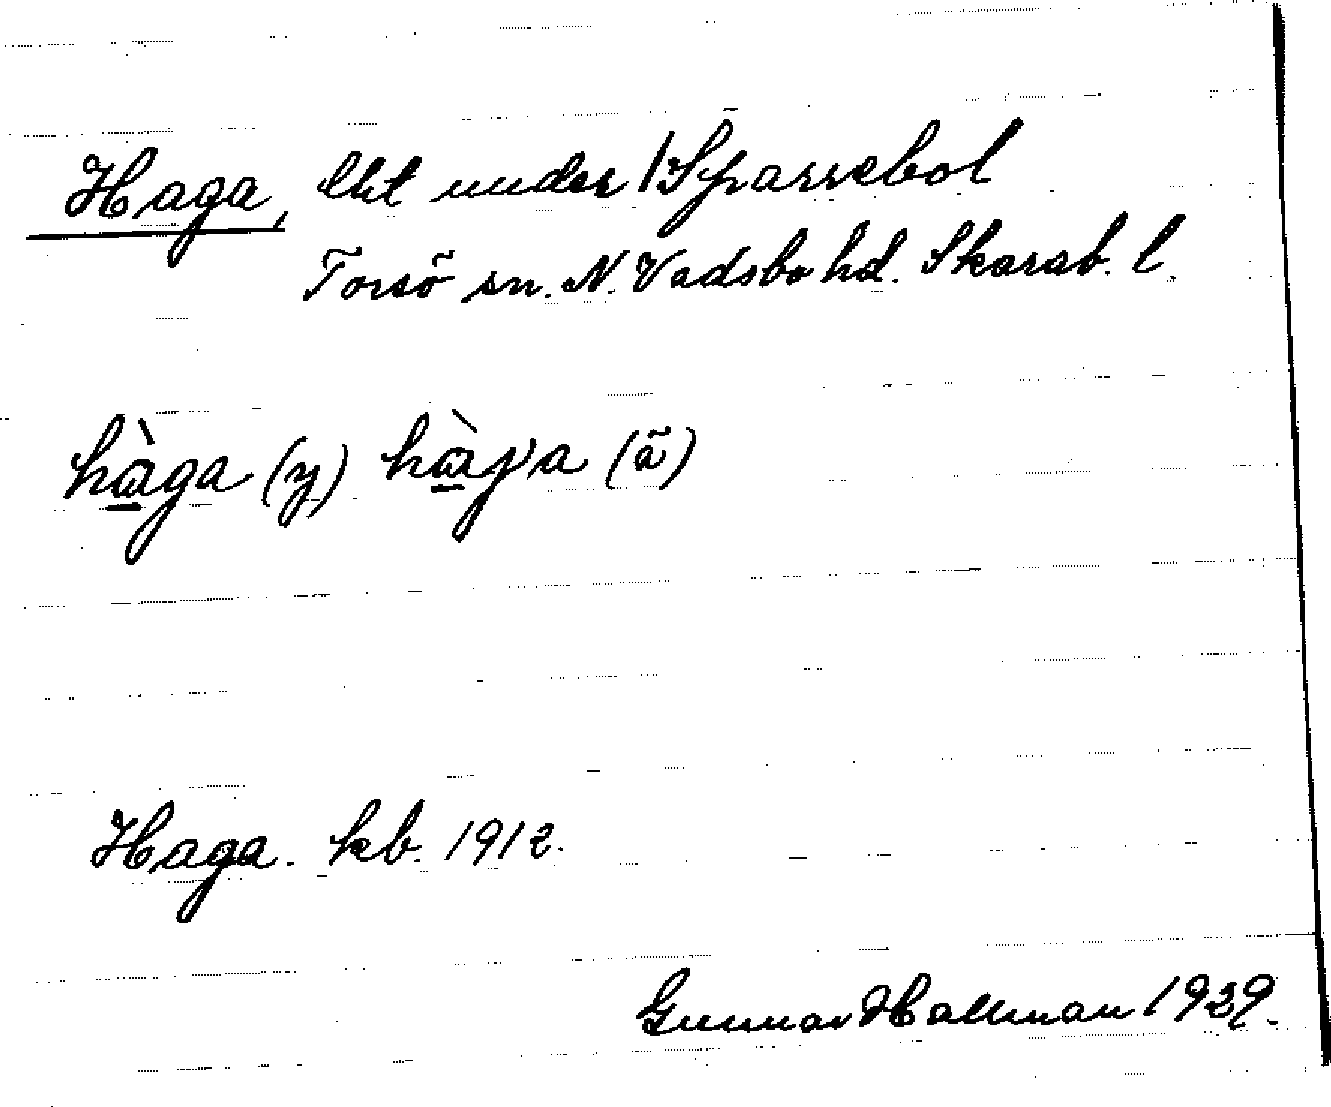 Haga, lht under /Sparrebol
Torsö sn. N. Vadsbo hd. Skarab. l.
hàga (y) hàγa (ã)
Haga. kb. 1912.
Gunnar Hallman 1929.